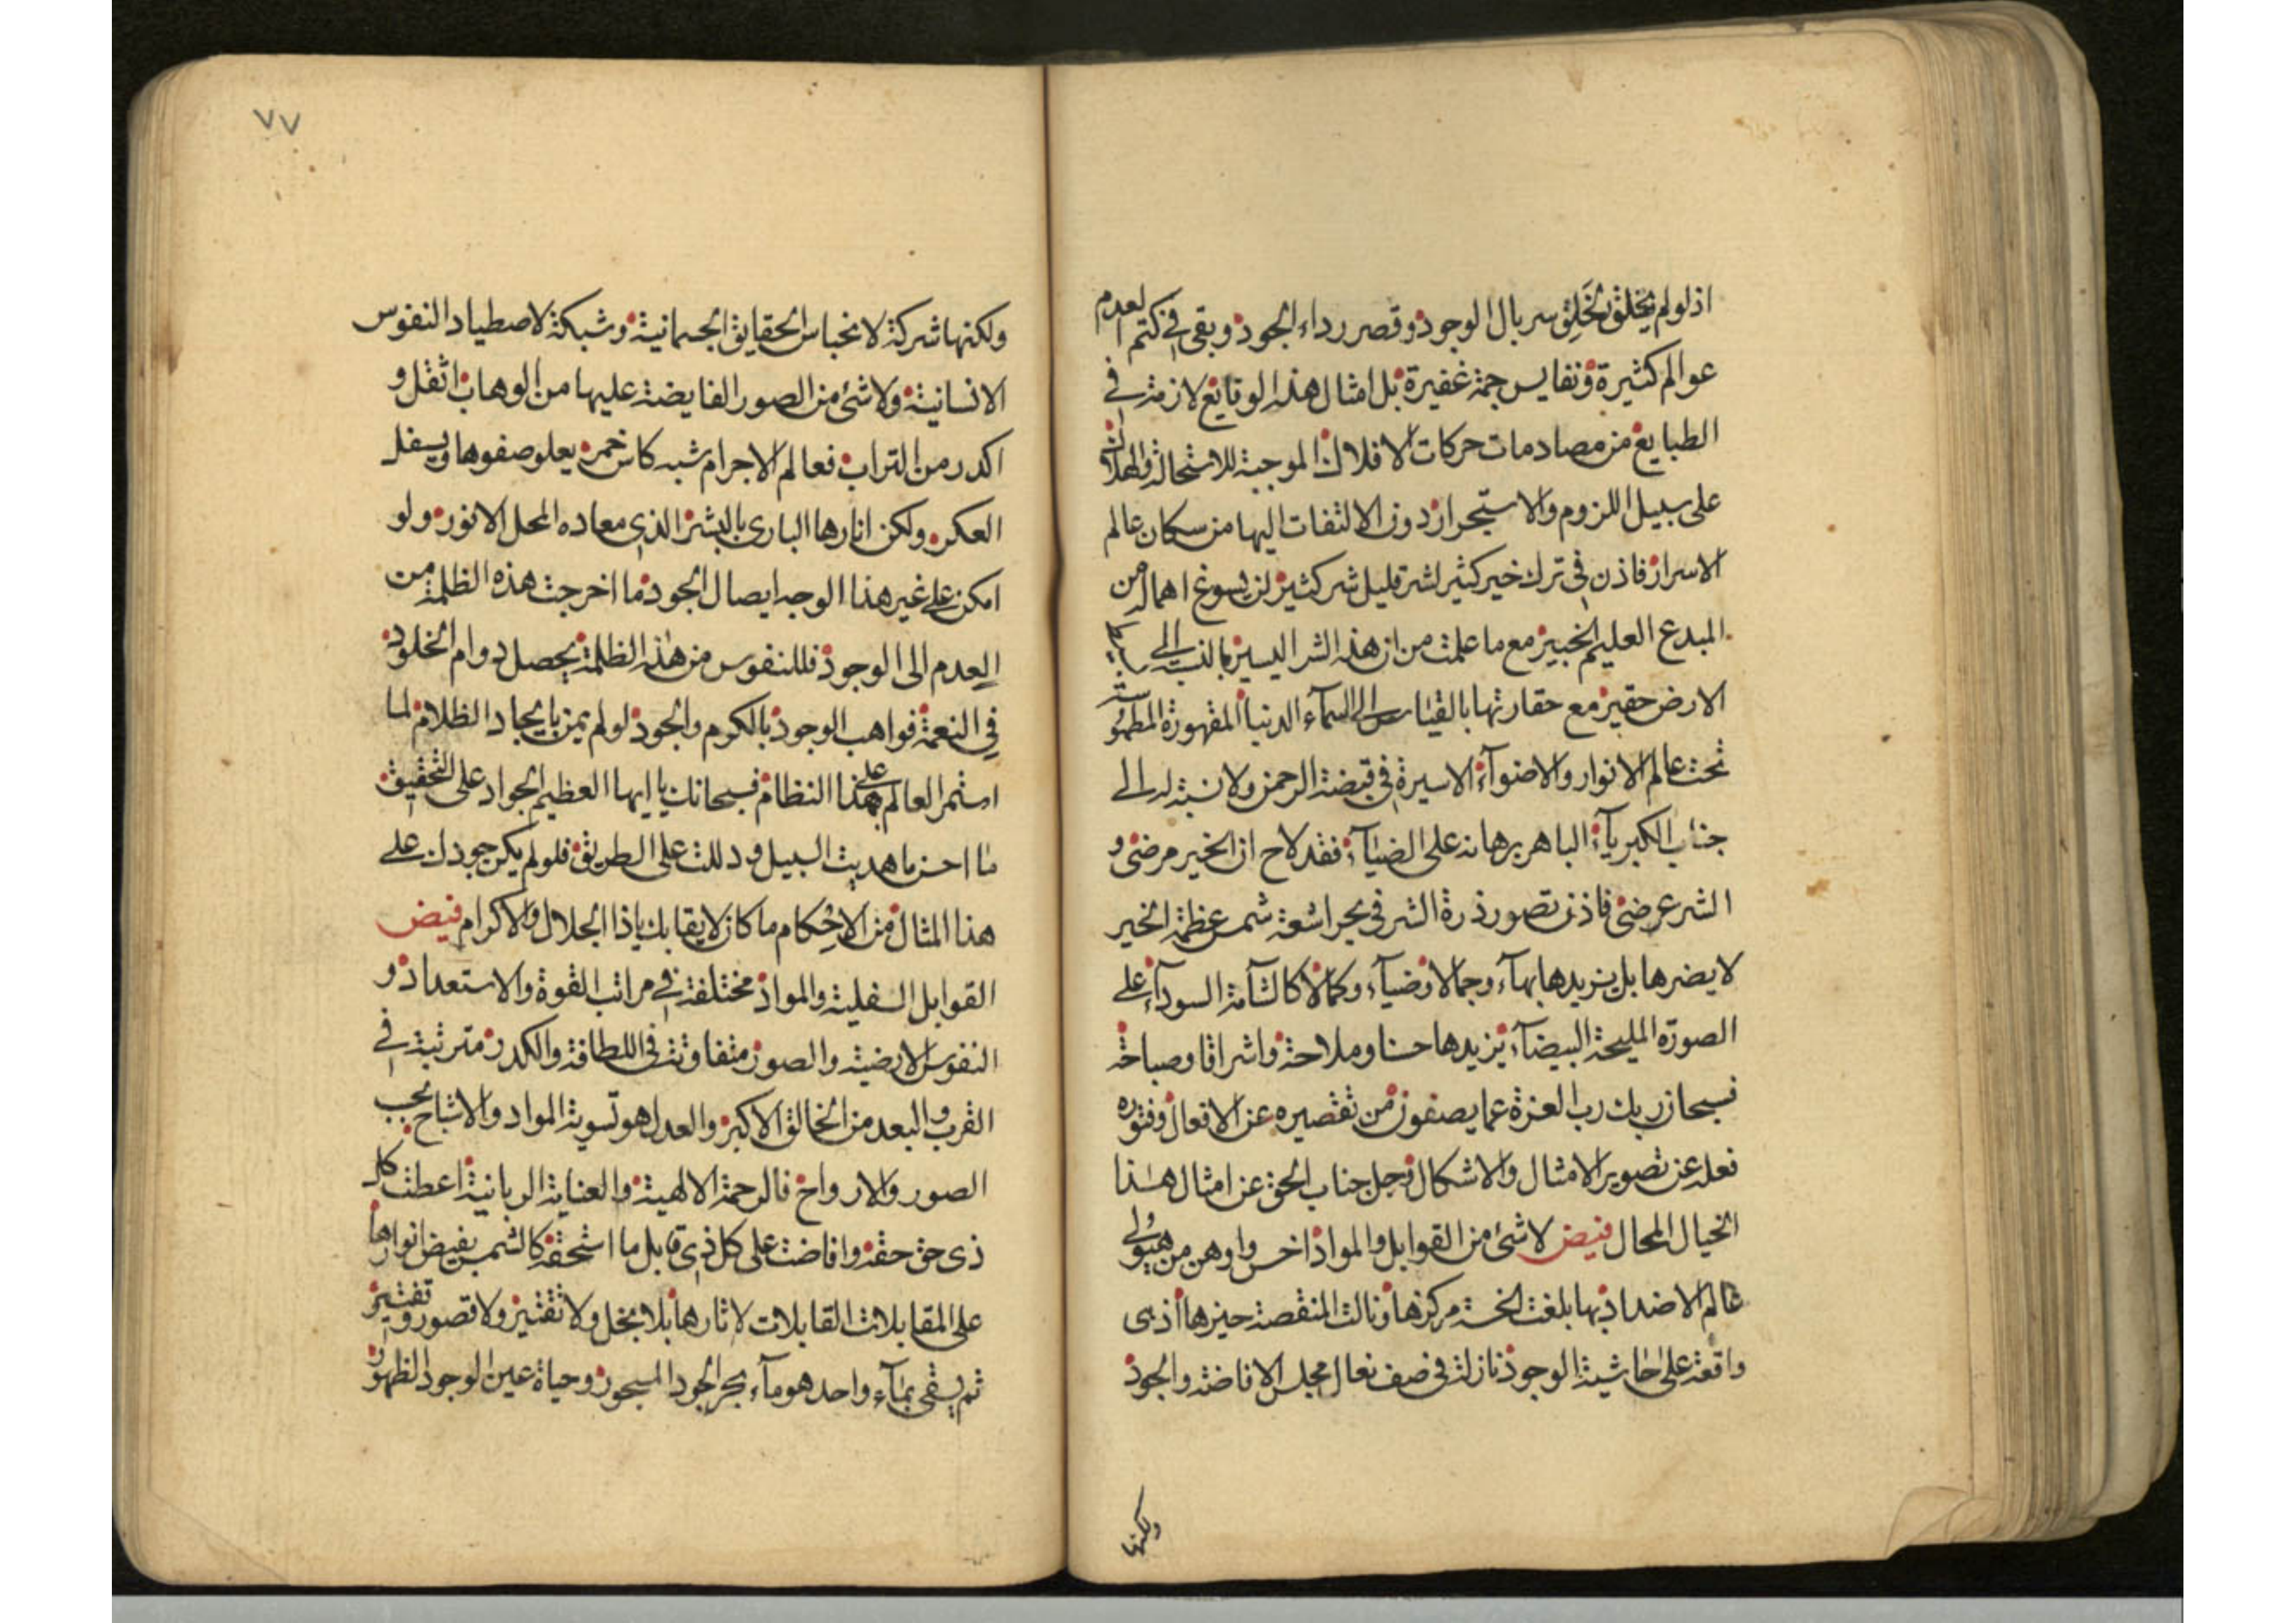 اذ لو لم يخلق بخلق سربال الوجود وقصر رداء الجود وبقي في كتم العدم
عوالم كثيرة ونفايس جمة غفيرة بل امثال هذه الوقايع لازمة في
الطبايع من مصادمات حركات الافلاك الموجبة للاستحالة والهلاك
على سبيل اللزوم والاستجرار دون الالتفات اليها من سكان عالم
الاسرار فاذن في ترك خير كثير لشر قليل شر كثير لن يسوغ اهماله من
المبدع العليم الخبير مع ما علمت من ان هذه الشر اليسير بالنسبة الى
الارض حقير مع حقارتها بالقياس الى السمآء الدنيا المقهورة المطموسة
تحت عالم الانوار والاضوآء الاسيرة في قبضة الرحمن ولا نسبة له الى
جناب الكبريآء الباهر برهانه على الضيآء فقد لاح ان الخير مرضى و
الشر عرضى فاذن تصور ذرة الشر في بحر اشعة شمس عظمة الخير
لا يضرها بل يزيدها بهآء وجمالا وضيآء وكمالا كالشآمة السودآء على
الصورة المليحة البيضآء يزيدها حسنا وملاحة واشراقا وصباحة
فسبحان ربك رب العزة عما يصفون من تقصيره عن الافعال وفتوره
فعله عن تصوير الامثال والاشكال فجل جناب الحق عن امثال هذا
الخيال المحال فيض لا شئ من القوابل والمواد اخس واوهن من هيولى
عالم الاضداد بها بلغت الخسة مركزها ونالت المنقصة حيزها اذ هى
واقعة على حاشية الوجود نازلة في صف نعال مجلس الافاضة والجود
ولكنها
٧٧
ولكنها شركة لانحباس الحقايق الجسمانية وشبكة لاصطياد النفوس
الانسانية ولا شئ من الصور الفايضة عليها من الوهاب اثقل و
اكدر من التراب فعالم الاجرام شبه كاس خمر يعلو صفوها ويسفل
العكر ولكن انارها البارى بالبشر الذى معاده المحل الانور ولو
امكن على غير هذا الوجه ايصال الجود ما اخرجت هذه الظلمة من
العدم الى الوجود فللنفوس من هذه الظلمة يحصل دوام الخلود
في النعمة فواهب الوجود بالكرم والجود لو لم يمن بايجاد الظلام لما
استمر العالم على هذا النظام فسبحانك يا ايها العظيم الجواد على التحقيق
ما احسن ما هديت السبيل ودللت على الطريق فلو لم يكن جودك على
هذا المثال من الاحكام ما كان لايقا بك يا ذا الجلال والاكرام فيض
القوابل السفلية والمواد مختلفة في مراتب القوة والاستعداد و
النفوس الارضية والصور متفاوتة في اللطافة والكدر مترتبة في
القرب والبعد من الخالق الاكبر والعدل هو تسوية المواد والاشباح بحسب
الصور والارواح فالرحمة الالهية والعناية الربانية اعطت كل
ذى حق حقه وافاضت على كل ذى قابل ما استحقه كالشمس يفيض انوارها
على المقابلات القابلات لاثارها بلا بخل ولا تقتير ولا قصور وتفتير
ثم يسقى بمآء واحد هو مآء بحر الجود المسجور وحياة عين الوجود الظهور